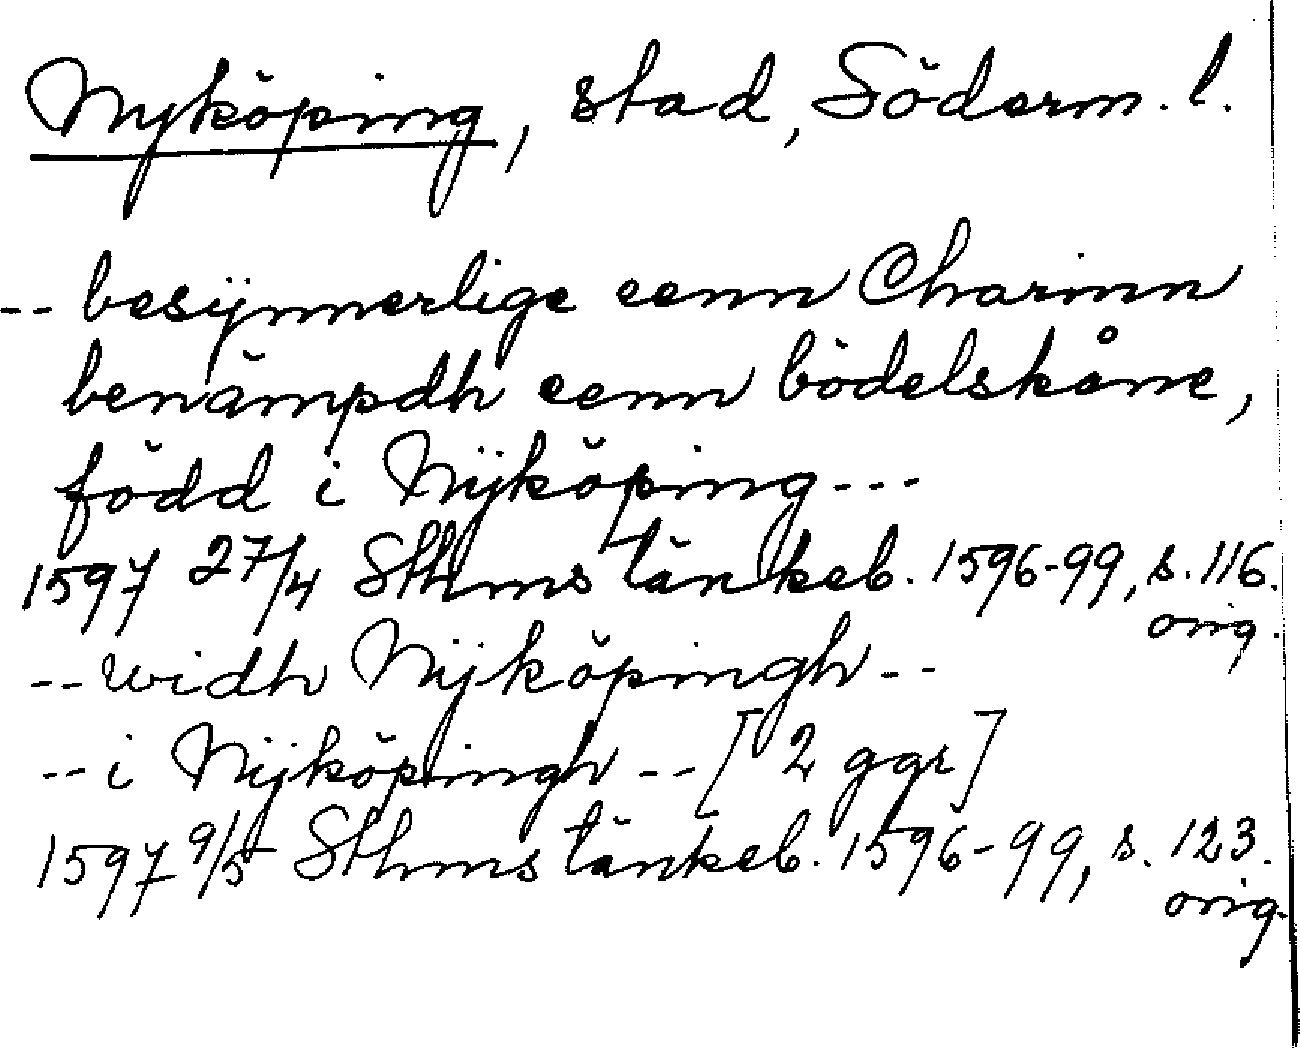 Nyköping, stad, Söderm. l.
-- besÿnnerlige eenn Charinn
benämpdh eenn bödelskåne,
född i Nÿköping ---
1597 27/4 Sthms tänkeb. 1596-99, s. 116.
orig.
-- widh Nÿköpingh --
-- i Nÿköpingh -- [2 ggr]
1597 9/5 Sthms tänkeb. 1596-99, s. 123.
orig.